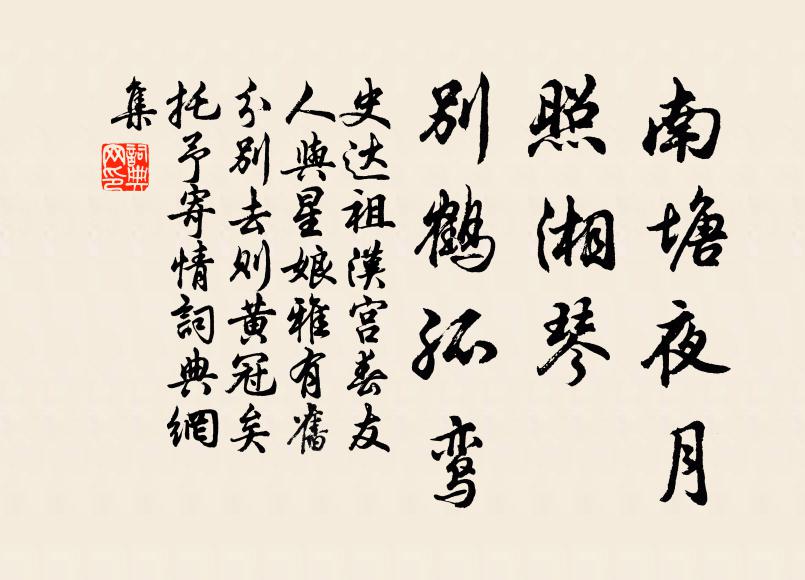 南塘夜月
照湘琴
别鹤孤鸾
史达祖漢宫春友
人與星娘雅有舊
分别去则黄冠矣
托予寄情詞典網
集
詞典
网印